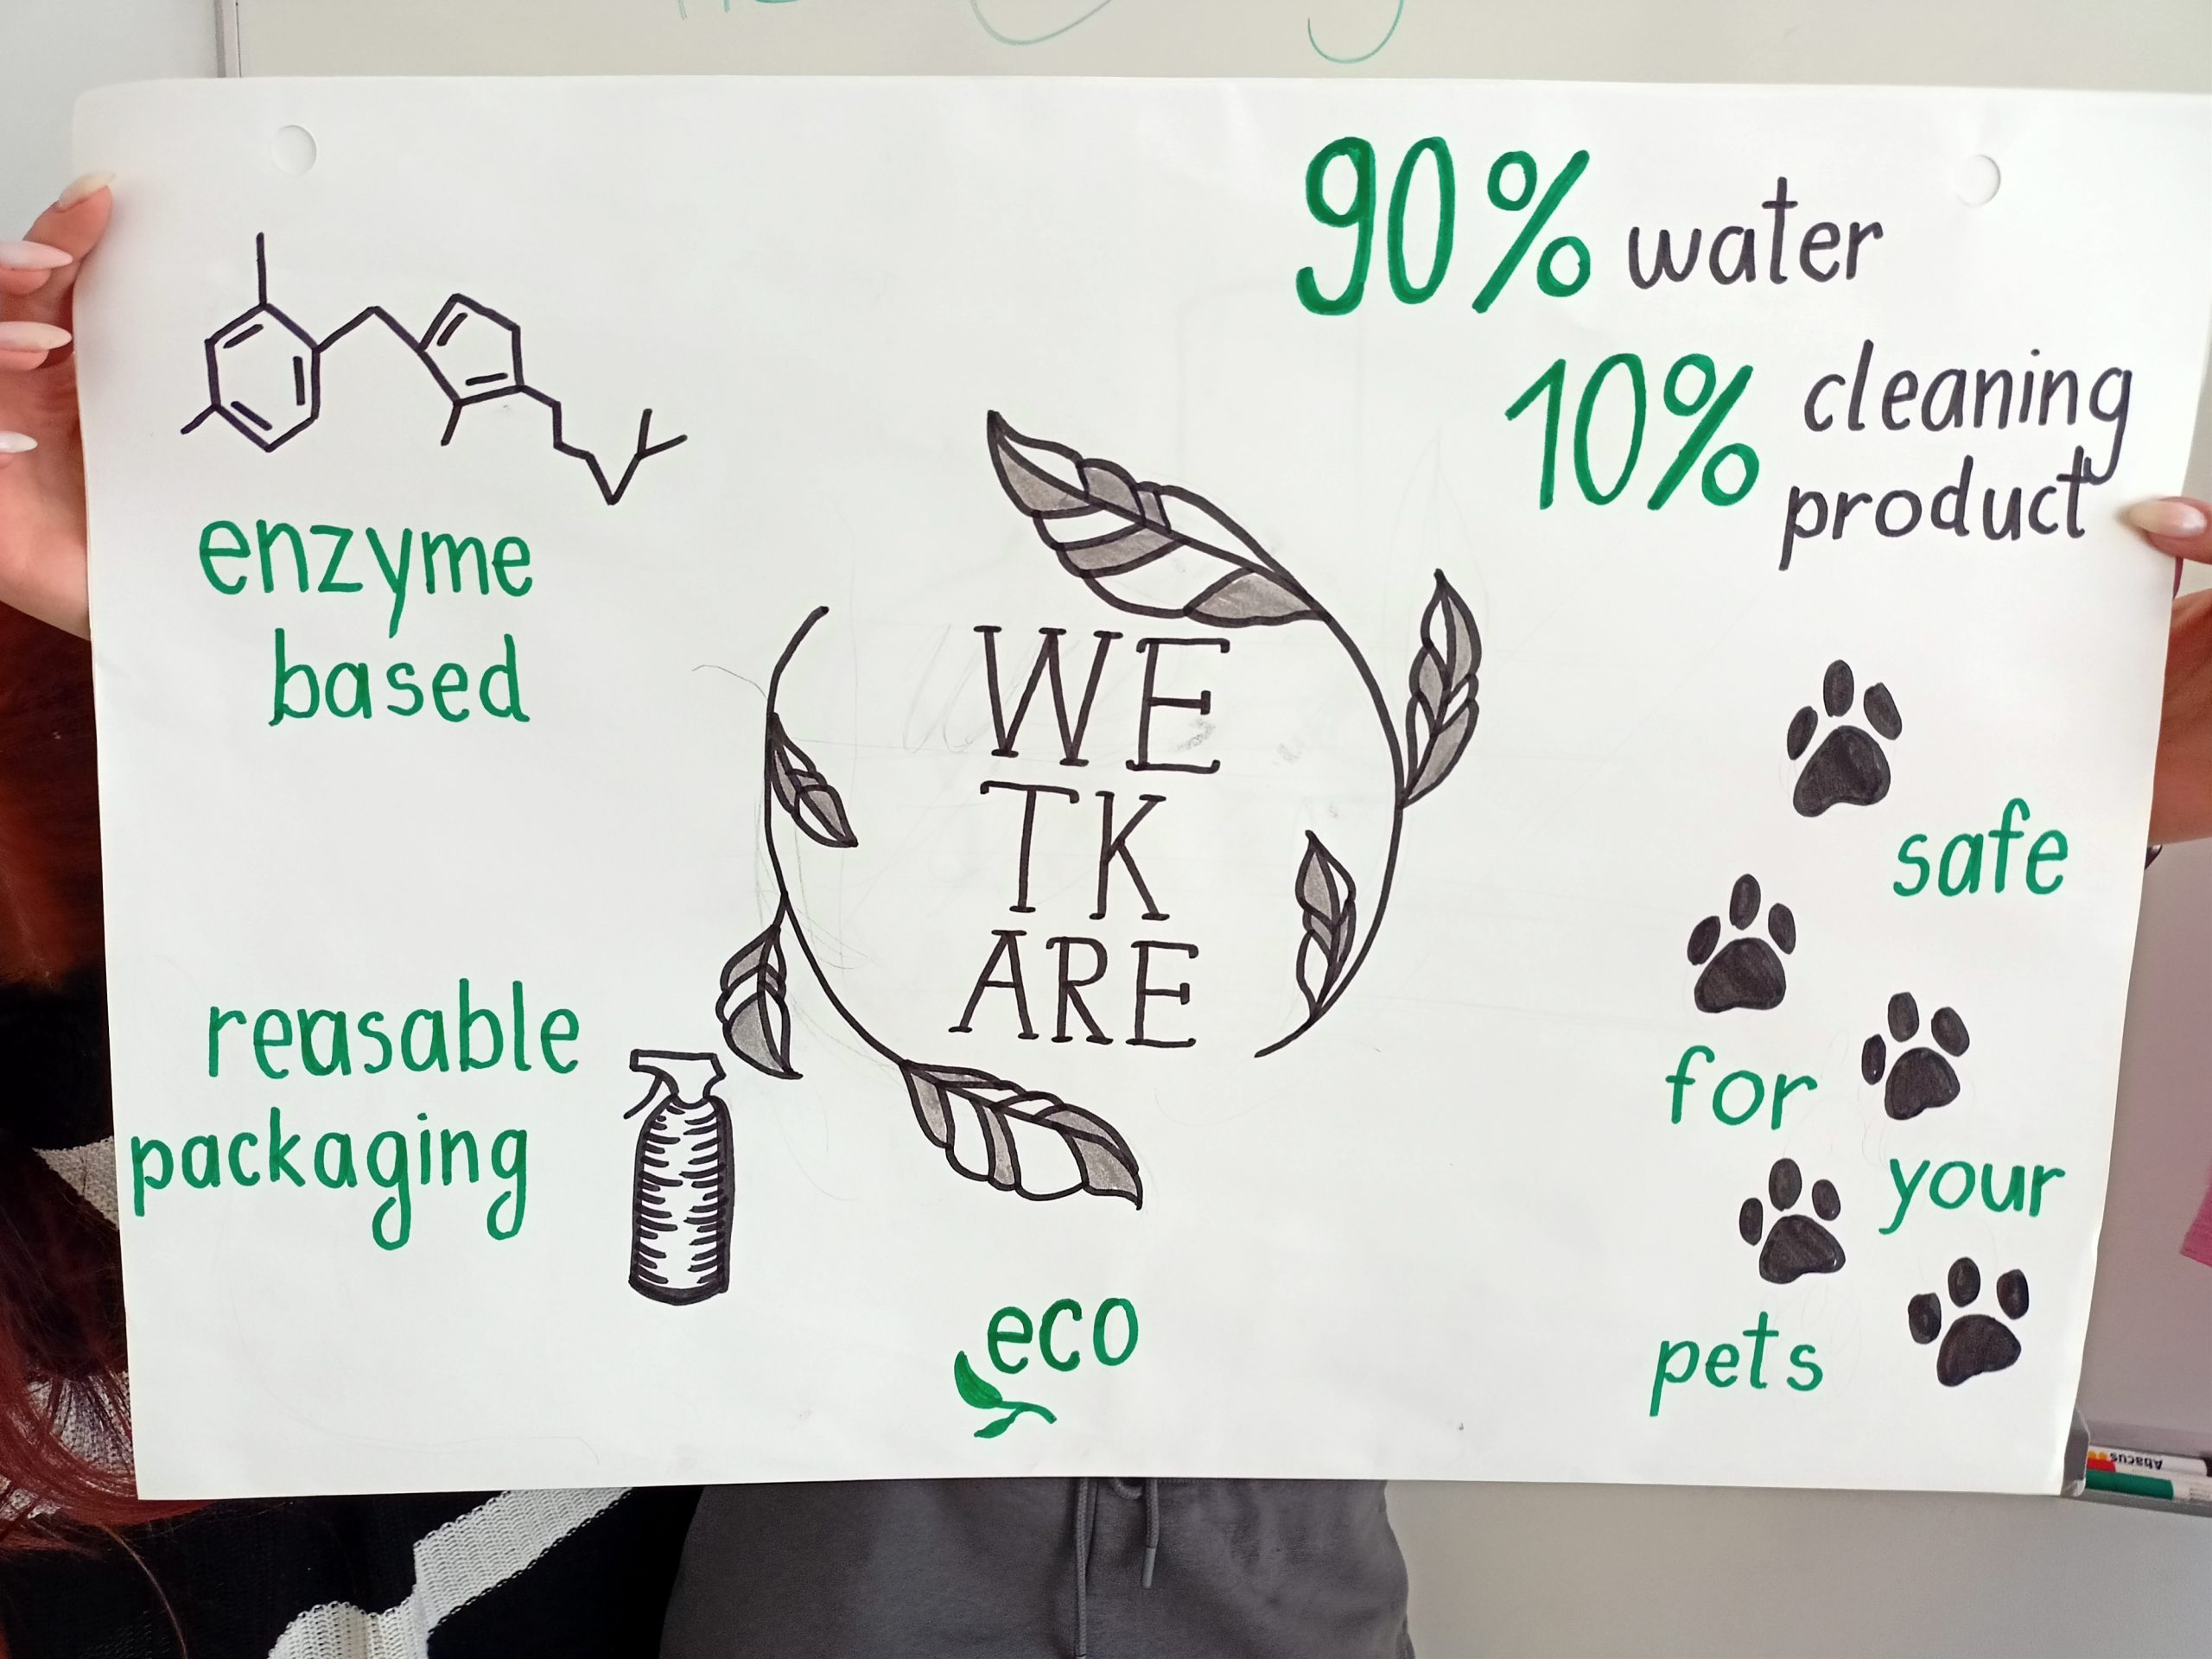 90% water
10% cleaning
product
enzyme
based
WE
TK
ARE
reasable
packaging
safe
for
your
pets
eco
Abacus